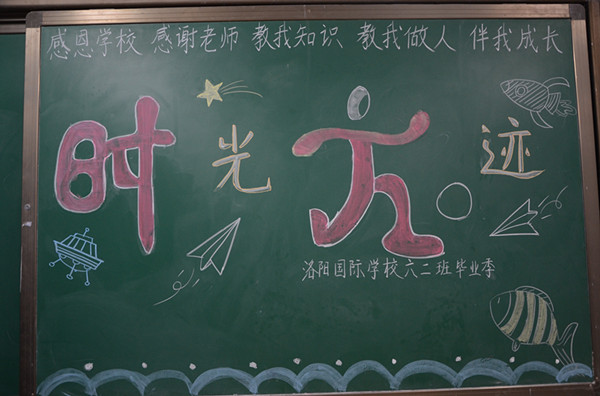 感恩学校 感谢老师 教我知识 教我做人 伴我成长
时光六迹
洛阳国际学校六二班毕业季